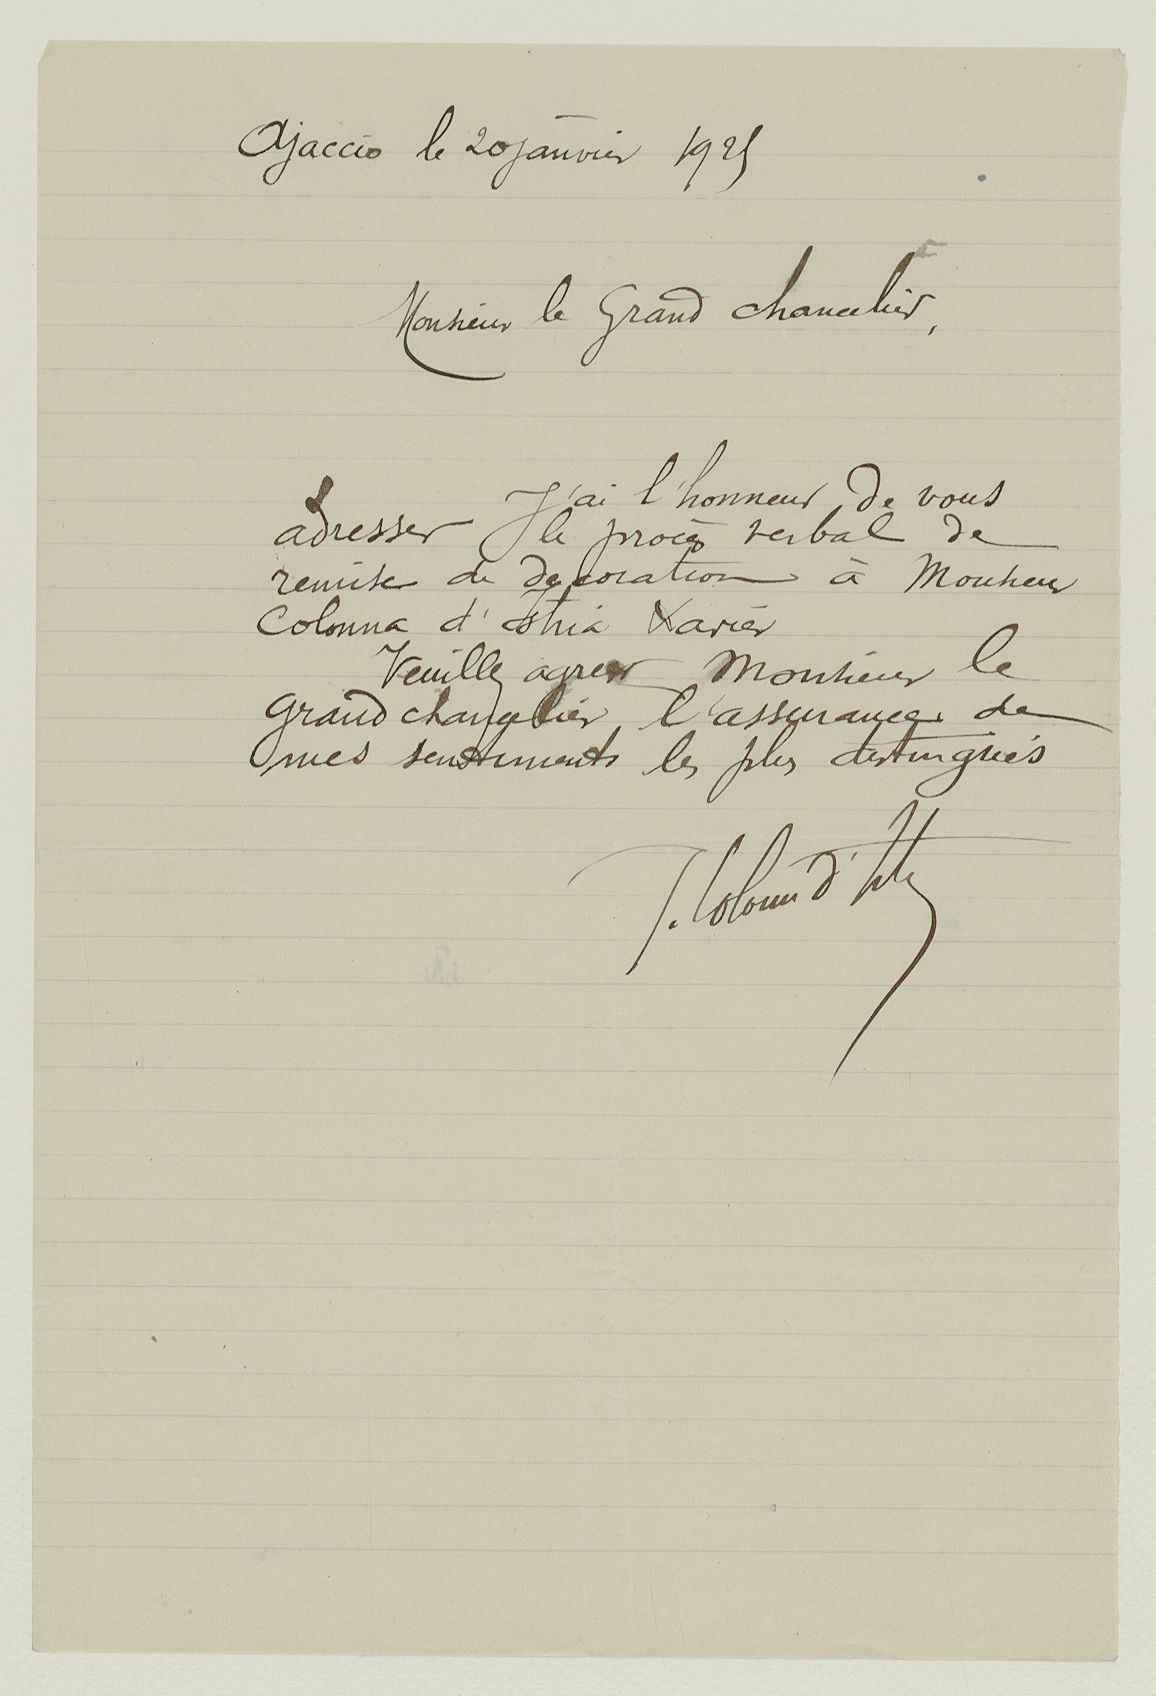 Ajaccio le 20 janvier 1925
Monsieur le Grand chancelier,
J'ai l'honneur de vous
adresser le procès verbal de
remise de decoration à Monsieur
Colonna d'istria Xavier
Veuillez agreer Monsieur le
Grand chancelier l'assurance de
mes sentiments les plus distingués
Colonna d'Istria